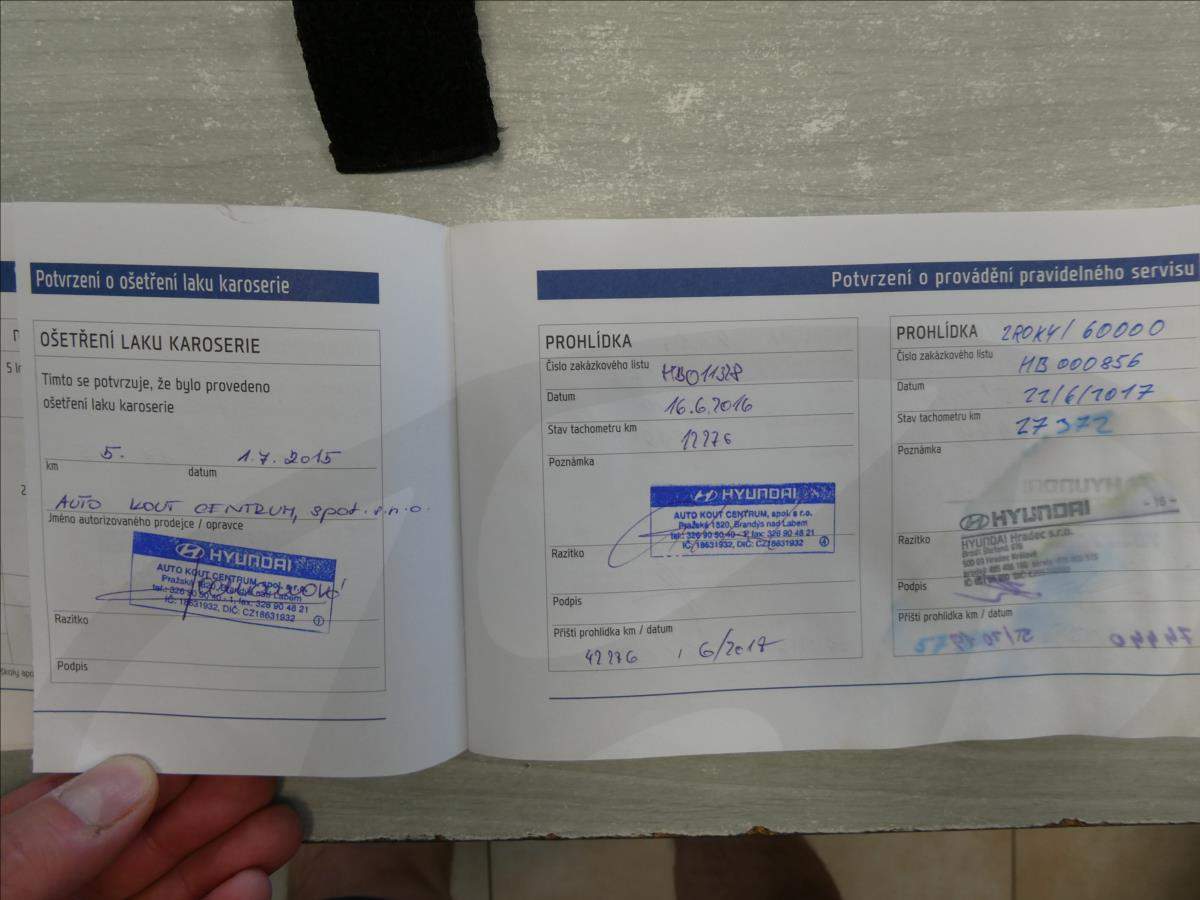 Potvrzení o ošetření laku karoserie
OŠETŘENÍ LAKU KAROSERIE
Tímto se potvrzuje, že bylo provedeno
ošetření laku karoserie
5. 1.7.2015
km datum
AUTO KOUT CENTRUM, spol. s.r.o.
Jméno autorizovaného prodejce / opravce
HYUNDAI
AUTO KOUT CENTRUM, spol. s r.o.
Pražská 1520, Brandýs nad Labem
tel.: 326 90 50 40 - 1, fax: 326 90 48 21
IČ: 18631932, DIČ: CZ18631932 1
Razítko
Podpis
Potvrzení o provádění pravidelného servisu
PROHLÍDKA
Číslo zakázkového listu HB011328
Datum 16.6.2016
Stav tachometru km 12276
Poznámka
HYUNDAI
AUTO KOUT CENTRUM, spol. s r.o.
Pražská 1520, Brandýs nad Labem
tel.: 326 90 50 40 - 1, fax: 326 90 48 21
IČ: 18631932, DIČ: CZ18631932 4
Razítko
Podpis
Příští prohlídka km / datum
42276 , 6/2017
PROHLÍDKA 2ROKY/ 60000
Číslo zakázkového listu HB 000856
Datum 22/6/2017
Stav tachometru km 27372
Poznámka
HYUNDAI - 16 -
HYUNDAI Hradec s.r.o.
Razítko
Podpis
Příští prohlídka km / datum